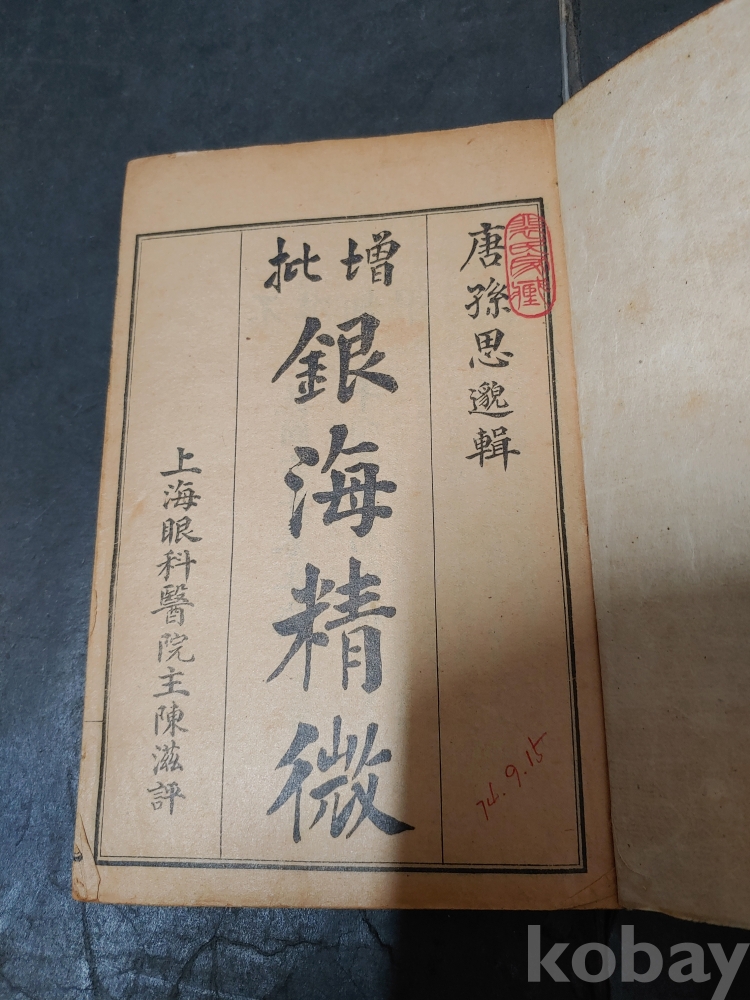 唐孫思邈輯
增批
銀海精微
上海眼科醫院主陳滋評
74.9.15
kobay